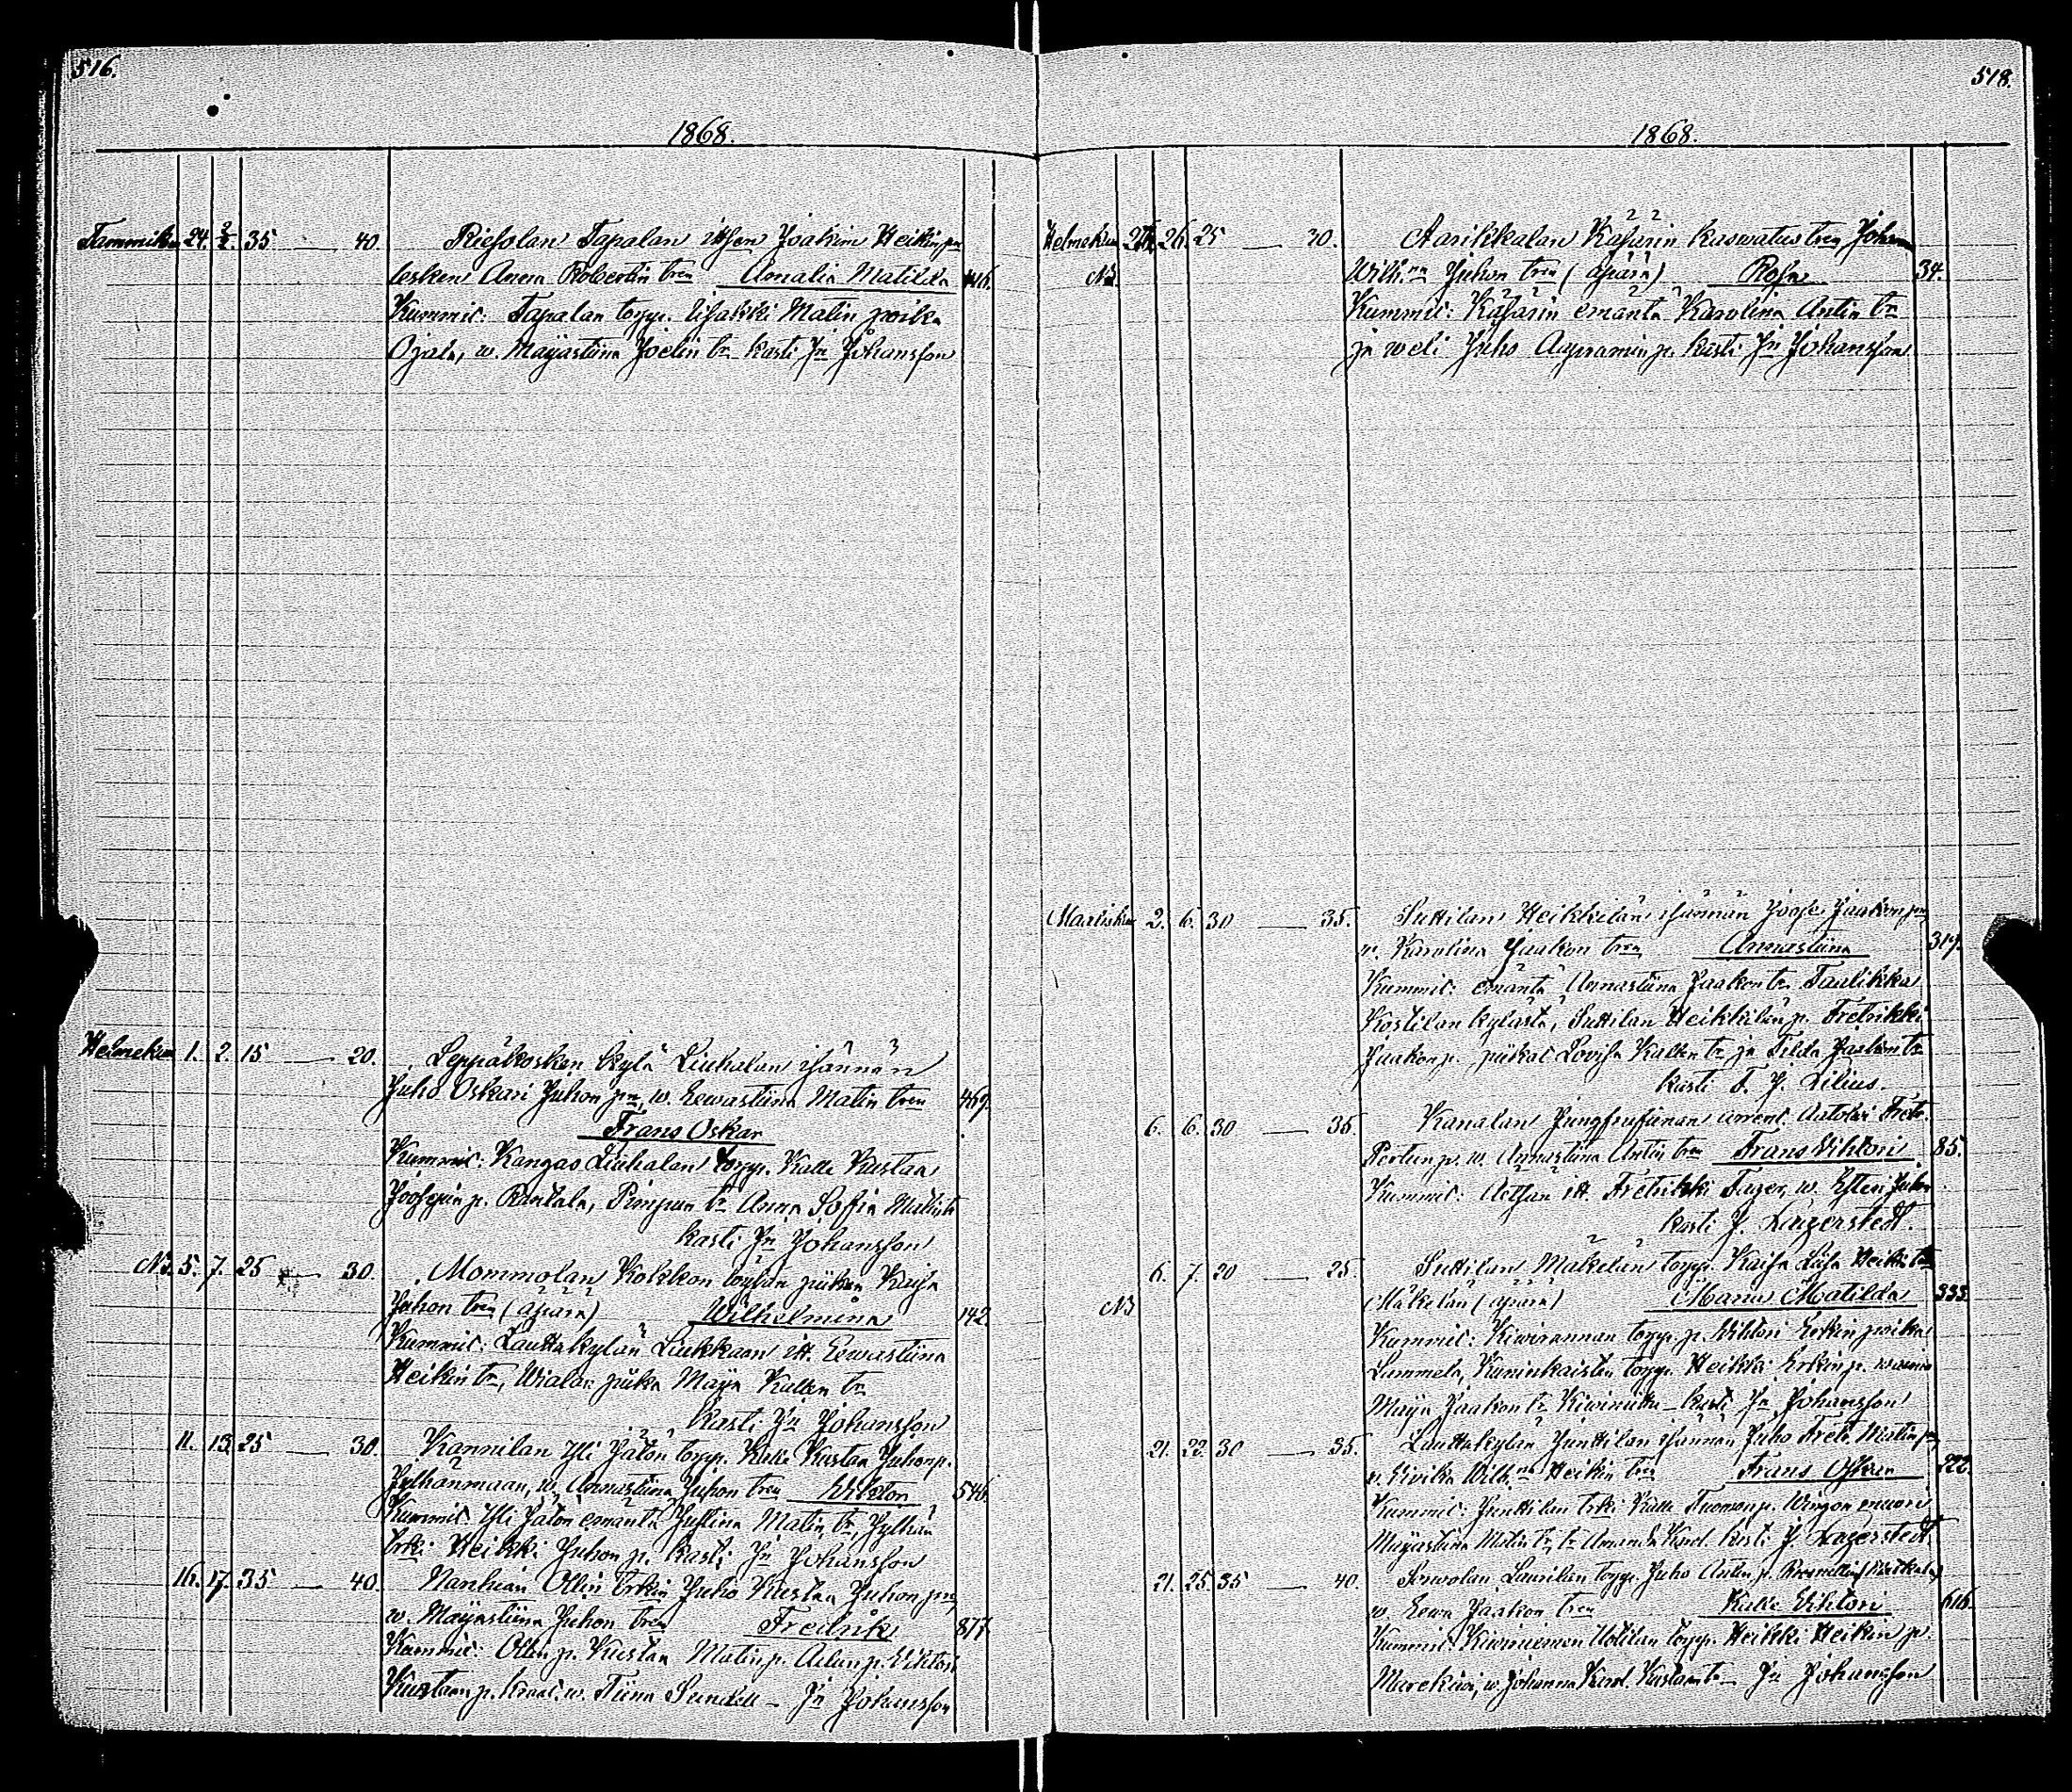 516.
1868.
Tammikun 24. 2/2. 35 — 40. Riesolan Tapalan itsen Joakim Heikinpn
lesken Anna Robertin tren Amalia Matilda 446.
Kummit: Tapalan torpp. Iisakki Matin poika
Ojala, w. Maijastiina Joelin tr kasti Jn Johansson
Helmekun 1. 2. 15 — 20. Leppäkosken kylä Liuhalan isännän
Juho Oskari Juhon pn, w. Eewastiina Matin tren 469.
Frans Oskar
Kummit: Kangas Liuhalan torpp. Kalle Kustaa
Joosepin p. Rantala, Pimpun tr Anna Sofia Matint
kasti Jn Johansson
No. 5. 7. 25 — 30. Mommolan Kokkon torpan piikan Kaisa
Juhon tren (äpärä) Wilhelmina 142.
Kummit: Lauttakylän Liukkaan itt. Eewastiina
Heikin tr, Wialan piika Maija Kallen tr
kasti Jn Johansson
11. 13. 25 — 30. Kannilan Yli Jaton torpp. Kalle Kustaa Juhonp.
Jylhänmaan, w. Annastiina Juhon tren Wiktor 546.
Kummit Yli Jaton emäntä Justina Matin tr, Jylhän
trki Heikki Juhon p. kasti Jn Johansson
16. 17. 35 — 40. Nanhian Ollin trkin Juho Kustaa Juhon pn,
w. Maijastiina Juhon tren Fredrik 877.
Kummit: Ollin p. Kustaa Matin p. p. Wiktori
Kustaan p. w. Tiina Sundell – Jn Johansson
518.
1868.
Helmekun 26. 25 — 30. Aarikkalan Käsärin kaswatus tren Johanna
No. Wilh.na Juhon tren (äpärä) Rosa 34.
Kummit: Käsärin emäntä Karolina Antin tr
ja weli Juho Aapramin p. kasti Jn Johansson
Maaliskun 2. 6. 30 — 35. Suttilan Heikkilän isännän Joose Jaakon pn
w. Karolina Jaakon tren Annastiina 319.
Kummit: emäntä Annastiina Jaakon tr Taulikka
Kostilan kylästä, Suttilan Heikkilän p. Fretrikki
Jaakon p. piikat Lovisa Kallen tr ja Tilda Jaakon tr
kasti F. J. Lilius.
6. 6. 30 — 35. Kanalan arrend. Antoni Fretr.
Pertun p. w. Annastiina Antin tren Frans Wihtori 85.
Kummit: itt. Fretrikki Fager, w. Juhon
kasti J. Lagerstedt.
6. 7. 20 — 25. Suttilan Mäkelän torpp. Kaisa Liisa Heikin tr
No Mäkelän (äpärä) Maria Matilda 333.
Kummit: Kiwirannan torpp. p. Wiktori Erkin poika
Lammela, Kaninkaisten torpp. Heikki Erkin p. waimo
Maija Jaakon tr Kiwiniitu – kasti Jn Johansson
21. 22. 30 — 35. Lauttakylän Junttilan isännän Juho Fretr. Matin pn,
w. Wilh.na Heikin tren Frans Oskar 222.
Kummit: Junttilan trki Kalle Tuomon p.
Maijastiina Matin tr, tr Amanda Karol. kasti J. Lagerstedt
21. 25. 35 — 40. Sorwolan Laurilan torpp. Juho Antin p.
w. Eewa Jaakon tren Kalle Wihtori 616.
Kummit: Kiwiniemen Uotilan torpp. Heikki Heikin p.
w. Johanna Karol. Kustaan tr – Jn Johansson